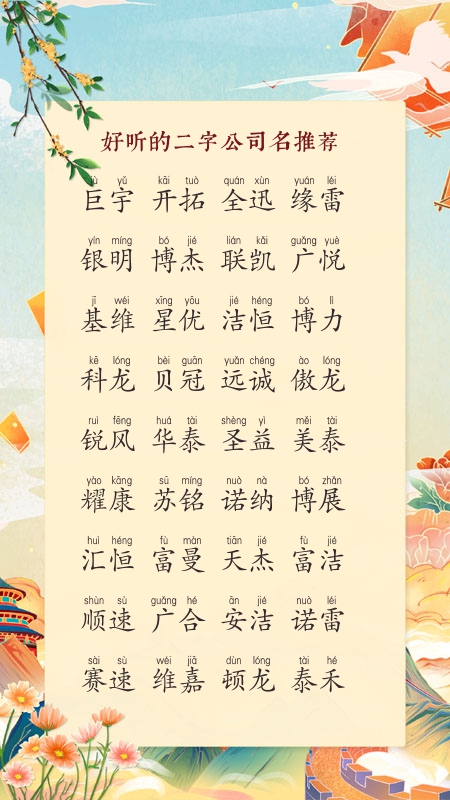 好听的二字公司名推荐
jù yǔ kāi tuò quán xùn yuán léi
巨宇 开拓 全迅 缘雷
yín míng bó jié lián kǎi guǎng yuè
银明 博杰 联凯 广悦
jī wéi xīng yōu jié héng bó lì
基维 星优 洁恒 博力
kē lóng bèi guān yuǎn chéng ào lóng
科龙 贝冠 远诚 傲龙
ruì fēng huá tài shèng yì měi tài
锐风 华泰 圣益 美泰
yào kāng sū míng nuò nà bó zhǎn
耀康 苏铭 诺纳 博展
huì héng fù màn tiān jié fù jié
汇恒 富曼 天杰 富洁
shùn sù guǎng hé ān jié nuò léi
顺速 广合 安洁 诺雷
sài sù wéi jiā dùn lóng tài hé
赛速 维嘉 顿龙 泰禾